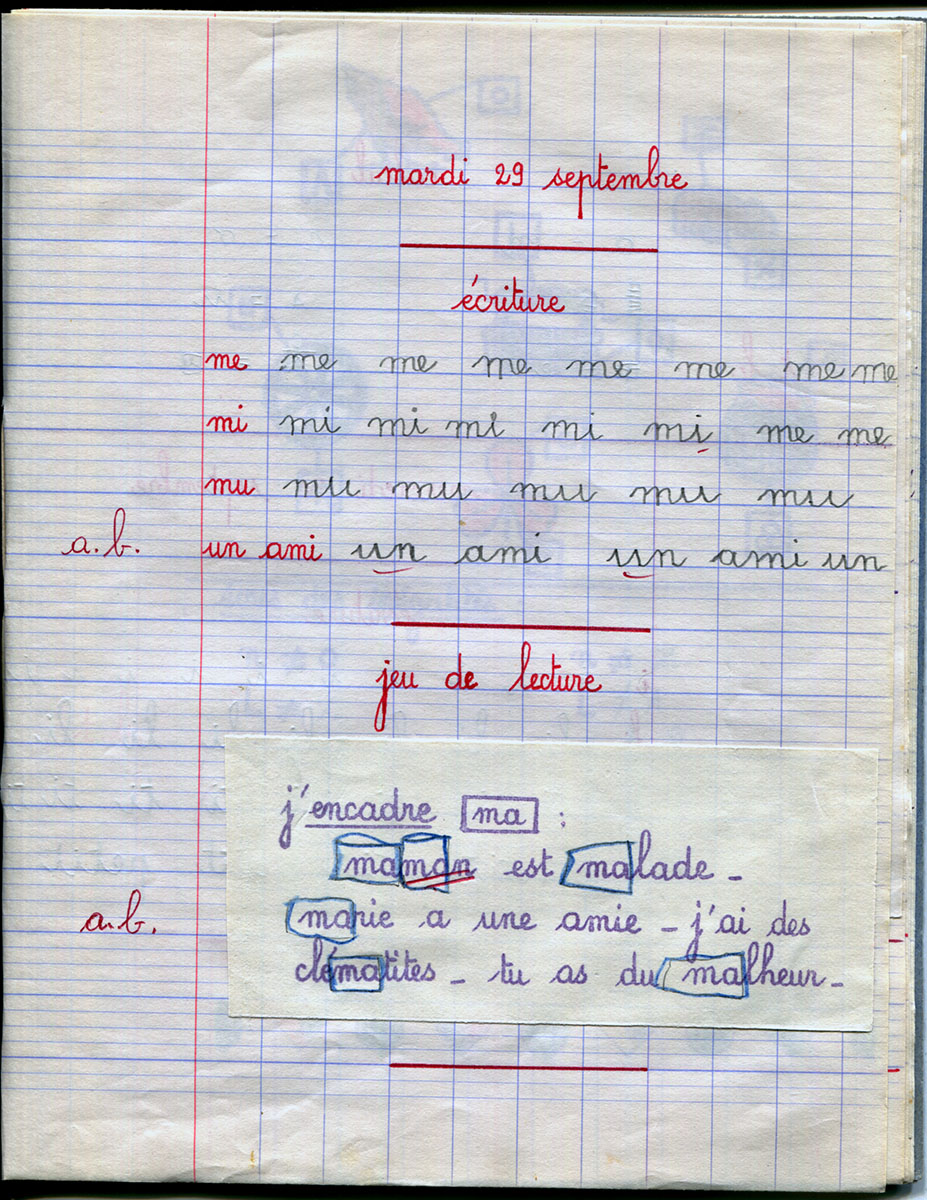 mardi 29 septembre
écriture
me me me me me me me me
mi mi mi mi mi mi me me
mu mu mu mu mu mu
a.b. un ami un ami un ami un
jeu de lecture
j'encadre ma :
maman est malade -
marie a une amie - j'ai des
a.b.
clématites - tu as du malheur -